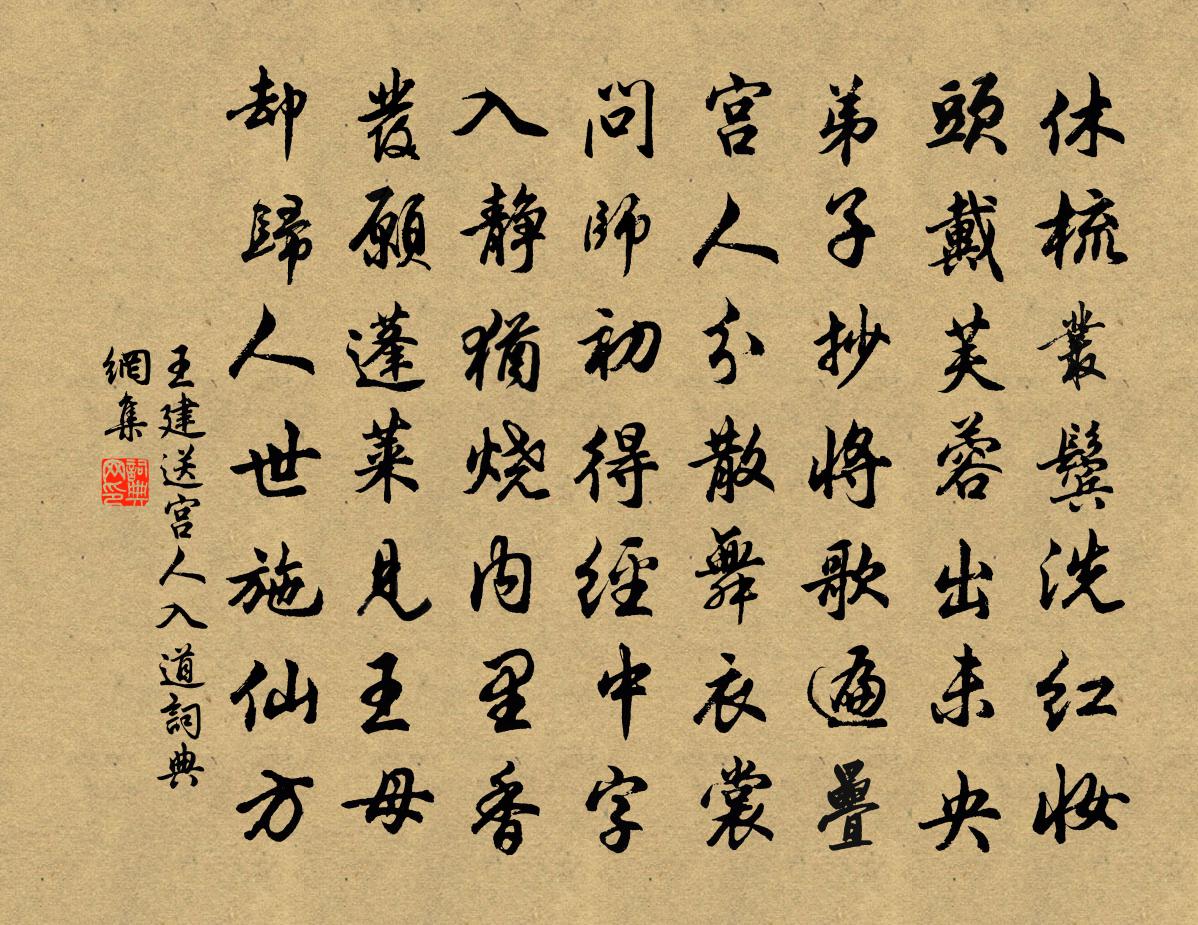 休梳叢鬢洗红妆
頭戴芙蓉出未央
弟子抄将歌遍疊
宫人分散舞衣裳
問師初得經中字
入静猶燒内里香
發願蓬萊見王母
却歸人世施仙方
王建送宫人入道詞典
網集
詞典
网印